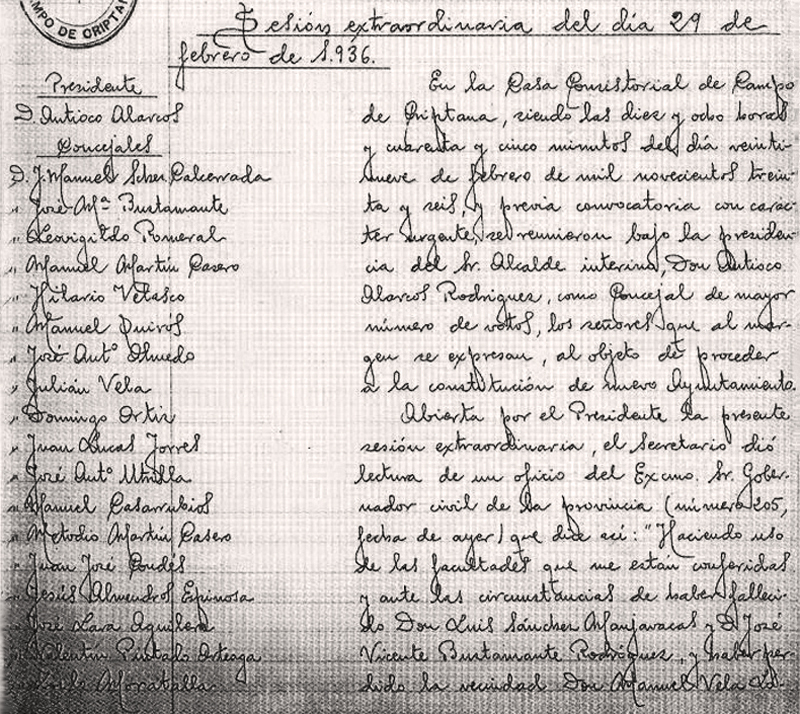 MPO DE CRIPTA
Sesión extraordinaria del día 29 de
febrero de 1.936.
Presidente
D. Antioco Alarcos
Concejales
D. J. Manuel Schez. Calcerrada
" José Mª Bustamante
" Leovigildo Pomeral
" Manuel Martín Casero
" Hilario Velasco
" Manuel Quirós
" José Antº Olmedo
" Julián Vela
" Domingo Ortiz
" Juan Lucas Torres
" José Antº Utrilla
" Manuel Casarrubios
" Metodio Martín Casero
" Juan José Condés
" Jesús Almendros Espinosa
" José Lara Aguilera
" Valentín Pintado Arteaga
Moratalla
En la Casa Consistorial de Campo
de Criptana, siendo las diez y ocho horas
y cuarenta y cinco minutos del día veinti-
nueve de febrero de mil novecientos trein-
ta y seis, y previa convocatoria con carác-
ter urgente, se reunieron bajo la presiden-
cia del Sr. Alcalde interino, Don Antioco
Alarcos Rodriguez, como Concejal de mayor
número de votos, los señores que al mar-
gen se expresan, al objeto de proceder
a la constitución de nuevo Ayuntamiento.
Abierta por el Presidente la presente
sesión extraordinaria, el Secretario dió
lectura de un oficio del Excmo. Sr. Gober-
nador civil de la provincia (número 205,
fecha de ayer) que dice así: "Haciendo uso
de las facultades que me están conferidas
y ante las circunstancias de haber falleci-
do Don Luis Sánchez Manjavacas y D. José
Vicente Bustamante Rodríguez, y haber per-
dido la vecindad Don Manuel Vela